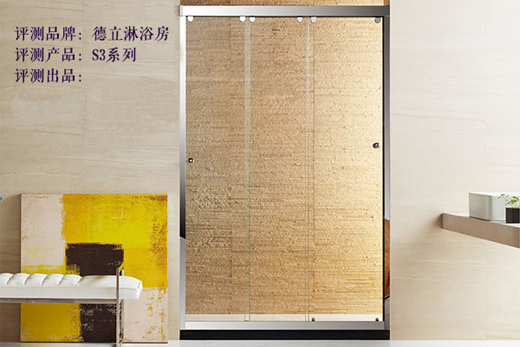 评测品牌：德立淋浴房
评测产品：S3系列
评测出品：